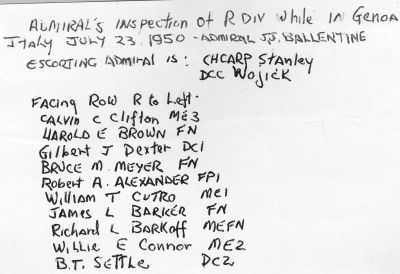 ADMIRAL'S INSPECTION of R DIV WHILE IN GENOA
ITALY JULY 23, 1950 - ADMIRAL J.J. BALLENTINE
ESCORTING ADMIRAL IS: CHCARP Stanley
DCC WOJICK
FACING ROW R to Left.
CALVIN C Clifton ME3
HAROLD E BROWN FN
Gilbert J Dexter DC1
BRUCE M. MEYER FN
Robert A. ALEXANDER FP1
William T CUTRO ME1
JAMES L BARKER FN
Richard L BARKOFF MEFN
Willie E Connor ME2
B.T. SETTLE DC2